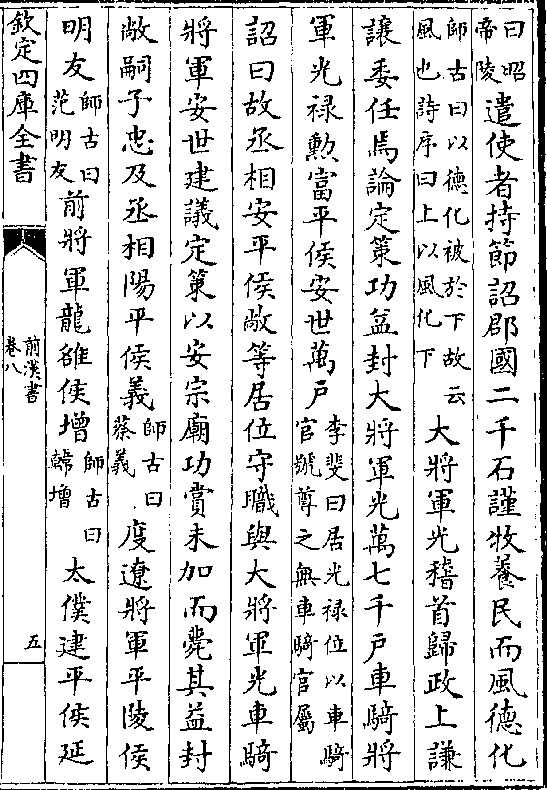 曰昭
帝陵
遣使者持節詔郡國二千石謹牧養民而風德化
師古曰以德化被於下故云
風也詩序曰上以風化下
大將軍光稽首歸政上謙
讓委任焉論定策功益封大將軍光萬七千戸車騎將
軍光禄勲富平侯安世萬戸
李斐曰居光禄位以車騎
官號尊之無車騎官屬
詔曰故丞相安平侯敞等居位守職與大將軍光車騎
將軍安世建議定策以安宗廟功賞未加而薨其益封
敞嗣子忠及丞相陽平侯義
師古曰
蔡義
度遼將軍平陵侯
明友
師古曰
范明友
前將軍龍雒侯増
師古曰
韓增
太僕建平侯延
欽定四庫全書
前漢書
卷八
五